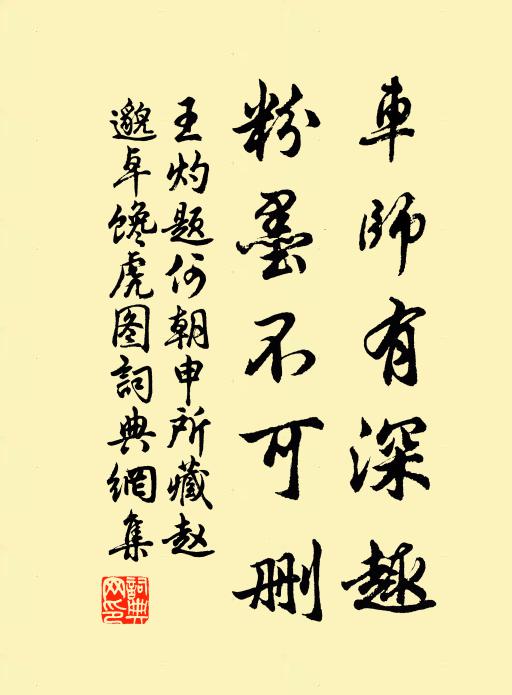 車師有深趣
粉墨不可删
王灼题何朝申所藏赵
邈卓馋虎图詞典網集
詞典网印